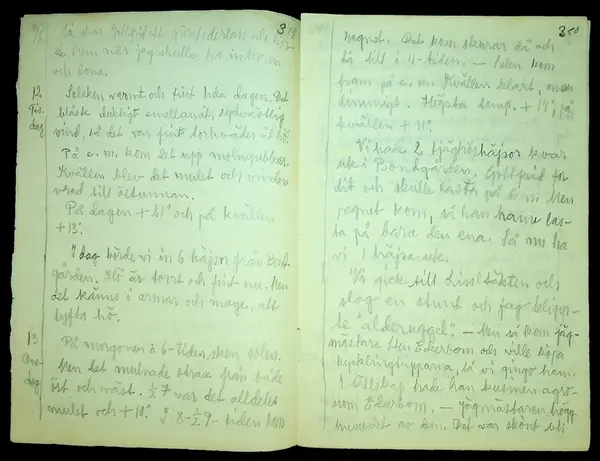 349
så
de hem när jag skulle ha in korna
och dona.
12. Solsken varmt och fint hela dagen. Det
Tis- blåste duktigt emellanåt, sydvästlig
dag vind, så det var fint torkväder åt hö.
På e.m. kom det upp molngubbar.
Kvällen blev det mulet och vinden
vred till östunnan.
På dagen + 21° och på kvällen
+ 13°.
I dag körde vi in 6 häjsor från Bond-
gården. Hö är torrt och fint nu. Men
det känns i armar och mage, att
lyfta hö.
13. På morgonen i 6-tiden sken solen.
Ons- Men det mulnade strax från både
dag öst och väst. ½ 7 var det alldeles
mulet och + 10°. I 8-½ 9-tiden kom
350
regnet. Det kom skurar då och
då till i 11-tiden. – Solen kom
fram på e.m. Kvällen klart, men
dimmigt. Högsta temp. + 14°, på
kvällen + 11°.
Vi hade 2 häjsor kvar
ute i Bondgården. Gottfrid for
dit och skulle lasta på dem. Men
regnet kom, så han hann las-
ta på bara den ena. Så nu ha
vi 1 häjsa ute.
Vi gick till och
slog en stund och jag klipp-
te – Men så kom jäg-
mästare Ekerbom och ville köpa
kycklingtupparna, så vi gingo hem.
I sällskap hade han kusinen agro-
nom Ekerbom. – Jägmästaren högg
huvudet av dem. Det var skönt att